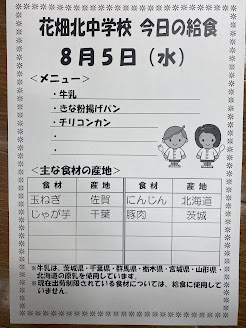 花畑北中学校 今日の給食
8月5日（水）
＜メニュー＞
・牛乳
・きな粉揚げパン
・チリコンカン
・
・
・
＜主な食材の産地＞
食材 産地 食材 産地
玉ねぎ 佐賀 にんじん 北海道
じゃが芋 千葉 豚肉 茨城
※牛乳は、茨城県・千葉県・群馬県・栃木県・宮城県・山形県・
北海道の原乳を使用しています。
※現在出荷制限されている食材については、給食に使用して
いません。